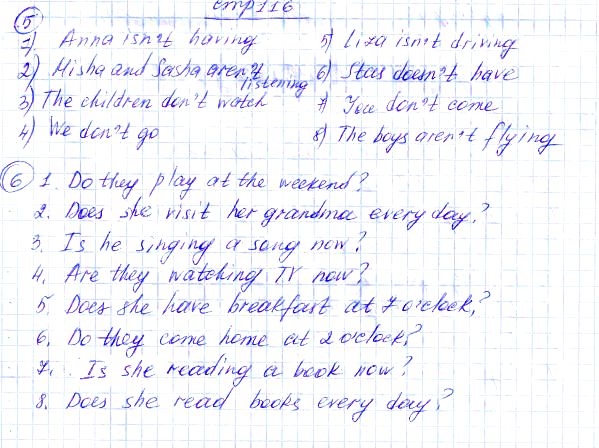 стр 116
5
1) Anna isn't having
2) Misha and Sasha aren't listening
3) The children don't watch
4) We don't go
5) Liza isn't driving
6) Stas doesn't have
7) You don't come
8) The boys aren't flying
6 1. Do they play at the weekend?
2. Does she visit her grandma every day?
3. Is he singing a song now?
4. Are they watching TV now?
5. Does she have breakfast at 7 o'clock?
6. Do they come home at 2 o'clock?
7. Is she reading a book now?
8. Does she read books every day?